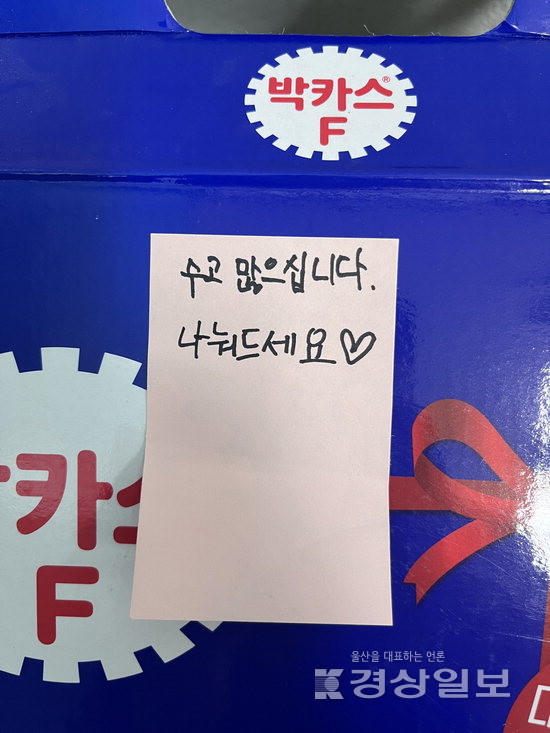 박카스®
F
수고 많으십니다.
나눠드세요♡
카스
F
울산을 대표하는 언론
경상일보